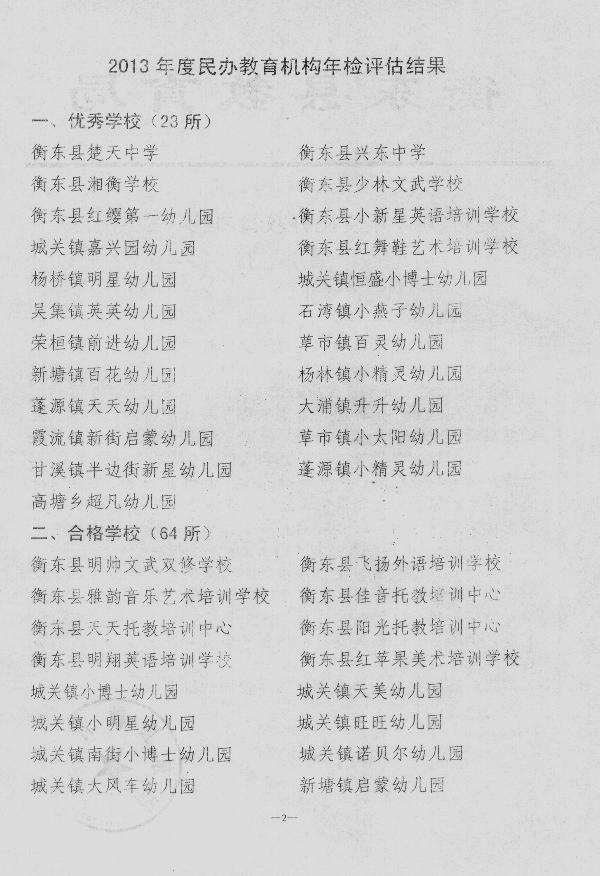 2013 年度民办教育机构年检评估结果
一、优秀学校（23 所）
衡东县楚天中学 衡东县兴东中学
衡东县湘衡学校 衡东县少林文武学校
衡东县红缨第一幼儿园 衡东县小新星英语培训学校
城关镇嘉兴园幼儿园 衡东县红舞鞋艺术培训学校
杨桥镇明星幼儿园 城关镇恒盛小博士幼儿园
吴集镇英英幼儿园 石湾镇小燕子幼儿园
荣桓镇前进幼儿园 草市镇百灵幼儿园
新塘镇百花幼儿园 杨林镇小精灵幼儿园
蓬源镇天天幼儿园 大浦镇升升幼儿园
霞流镇新街启蒙幼儿园 草市镇小太阳幼儿园
甘溪镇半边街新星幼儿园 蓬源镇小精灵幼儿园
高塘乡超凡幼儿园
二、合格学校（64 所）
衡东县明帅文武双修学校 衡东县飞扬外语培训学校
衡东县雅韵音乐艺术培训学校 衡东县佳音托教培训中心
衡东县天天托教培训中心 衡东县阳光托教培训中心
衡东县明翔英语培训学校 衡东县红苹果美术培训学校
城关镇小博士幼儿园 城关镇天美幼儿园
城关镇小明星幼儿园 城关镇旺旺幼儿园
城关镇南街小博士幼儿园 城关镇诺贝尔幼儿园
城关镇大风车幼儿园 新塘镇启蒙幼儿园
—2—